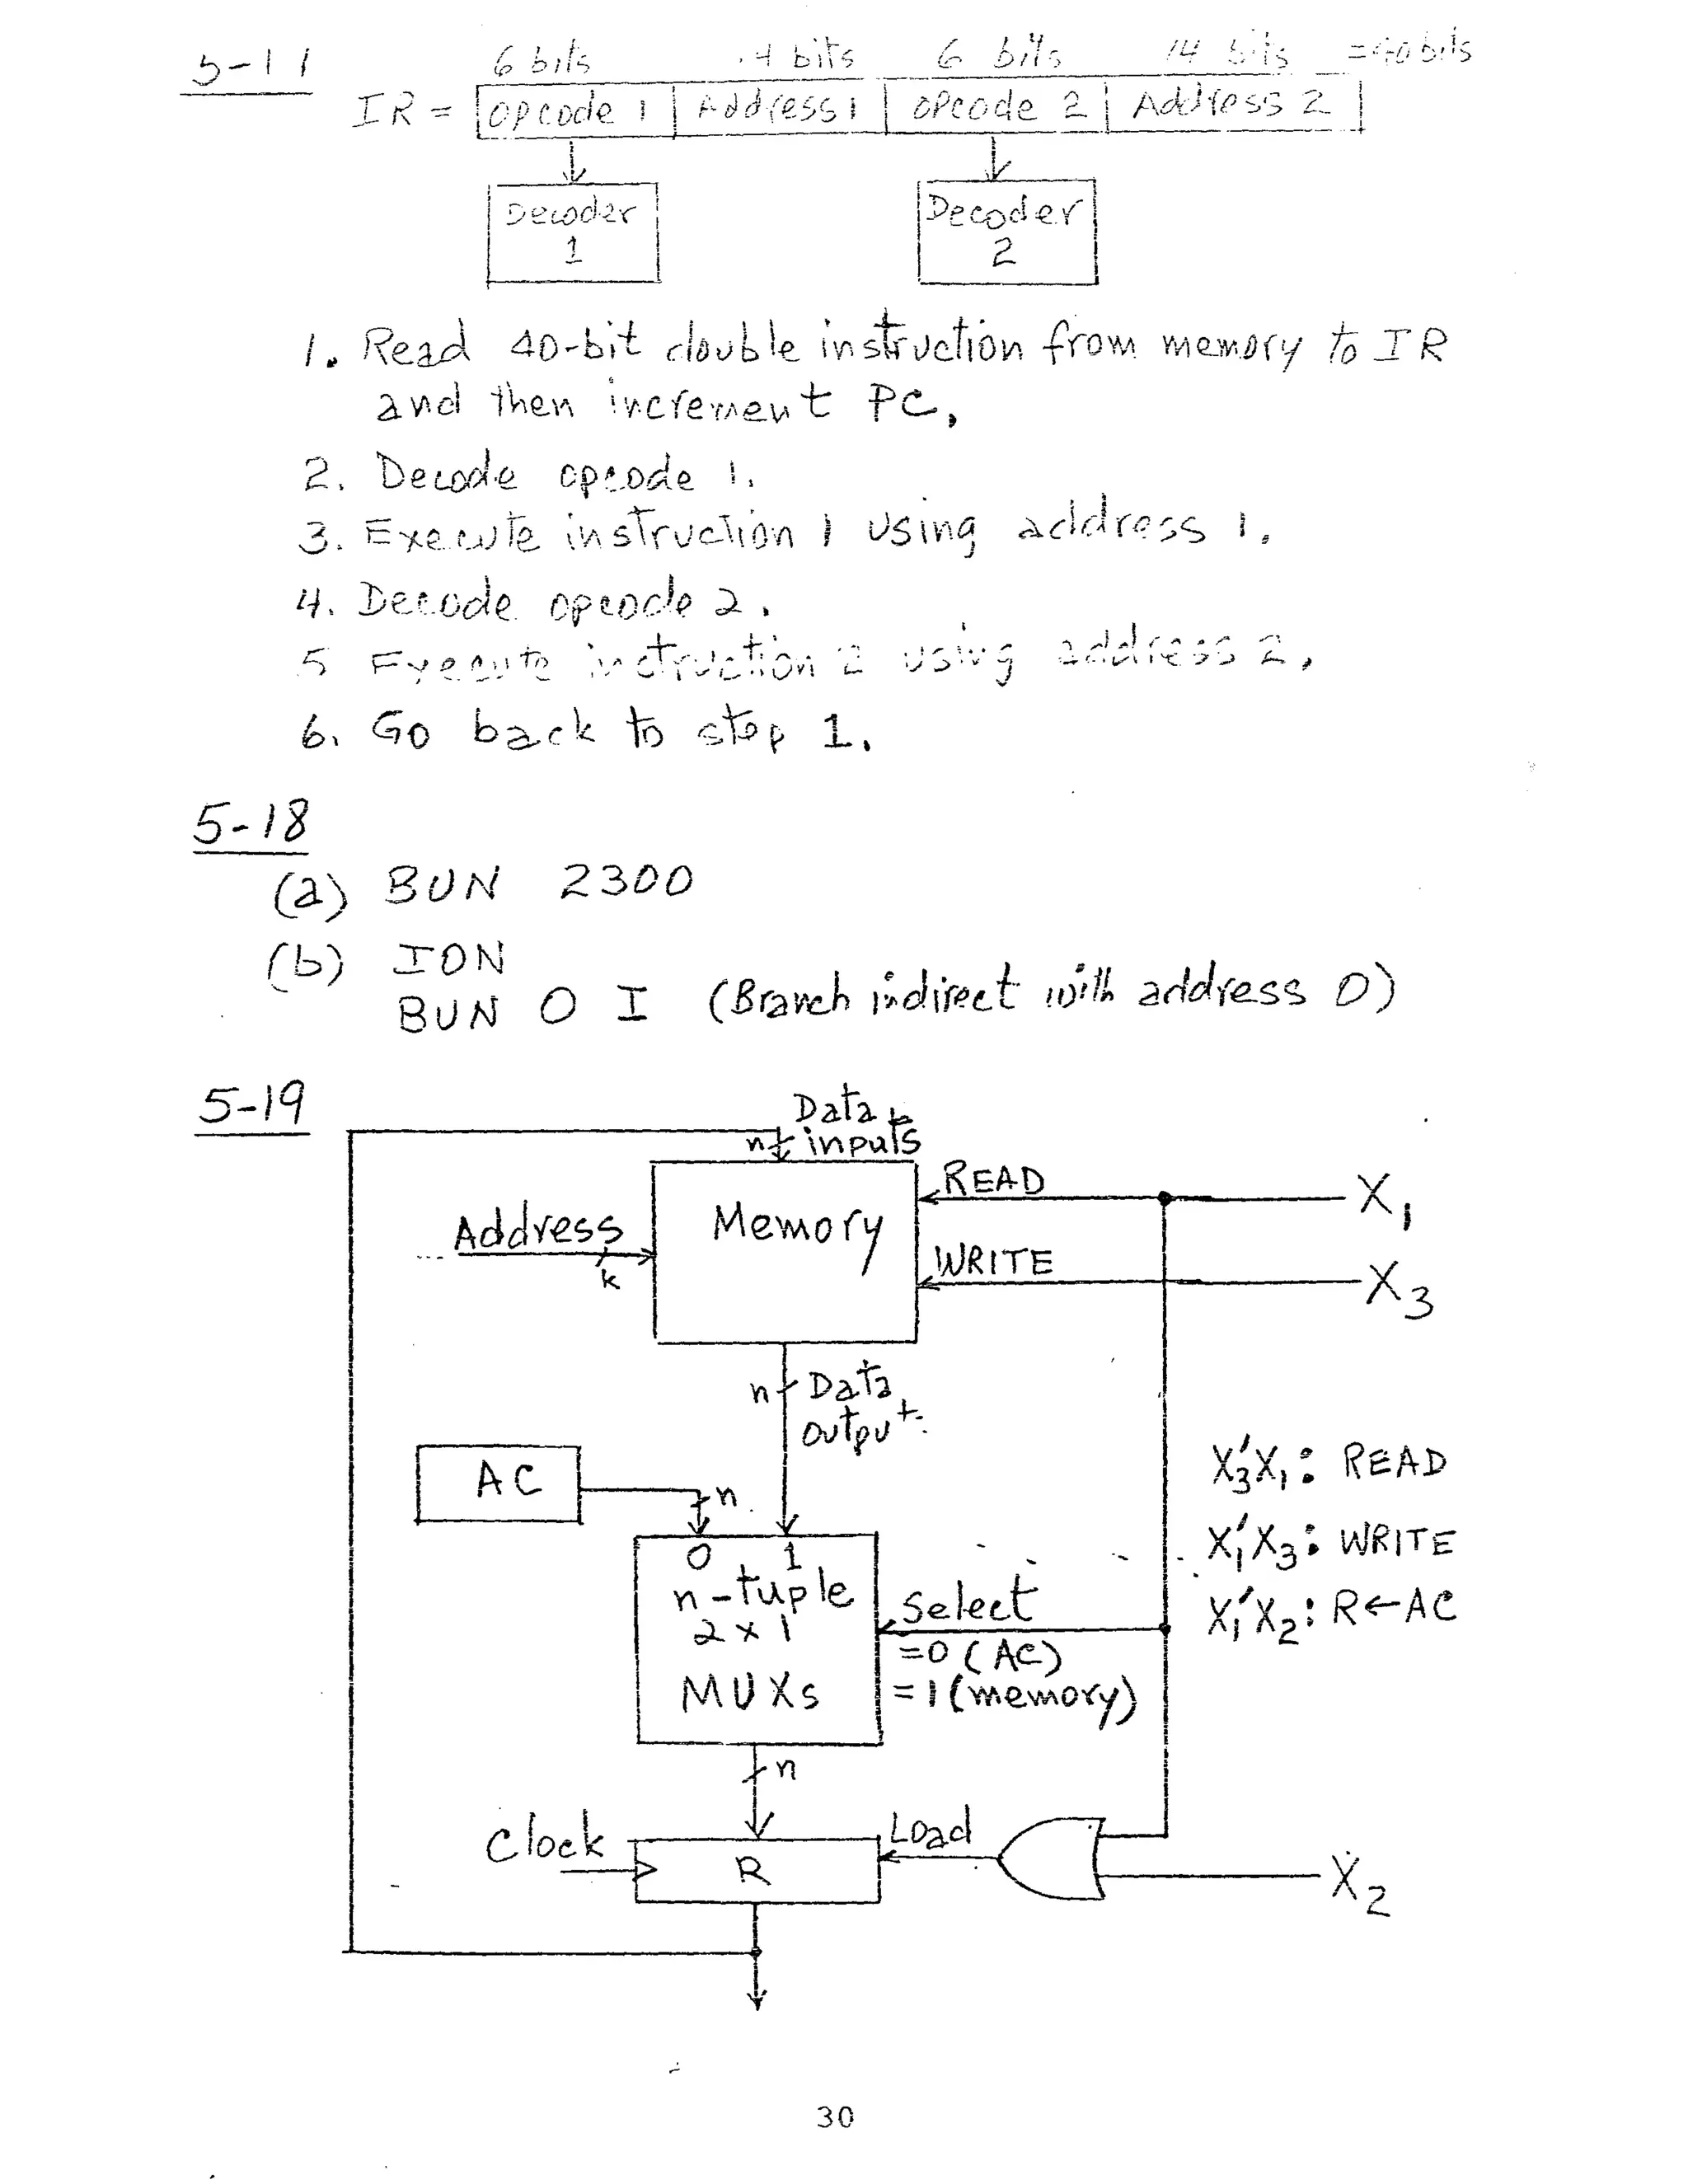 5-11
6 bits 14 bits 6 bits 14 bits =40 bits
IR = opcode 1 Address 1 opcode 2 Address 2
Decoder Decoder
1 2
1. Read 40-bit double instruction from memory to IR
and then increment PC,
2. Decode opcode 1.
3. Execute instruction 1 using address 1.
4. Decode opcode 2.
5 Execute instruction 2 using address 2,
6. Go back to step 1.
5-18
(a) BUN 2300
(b) ION
BUN 0 I (Branch indirect with address 0)
5-19
Data
n inputs
READ
X1
Address
Memory
k
WRITE
X3
n Data
output.
AC
n
X3'X1: READ
X1'X3: WRITE
X1'X2: R←AC
0 1
n-tuple
2 x 1
MUXs
Select
=0 (AC)
=1 (memory)
n
Clock
R
Load
X2
30